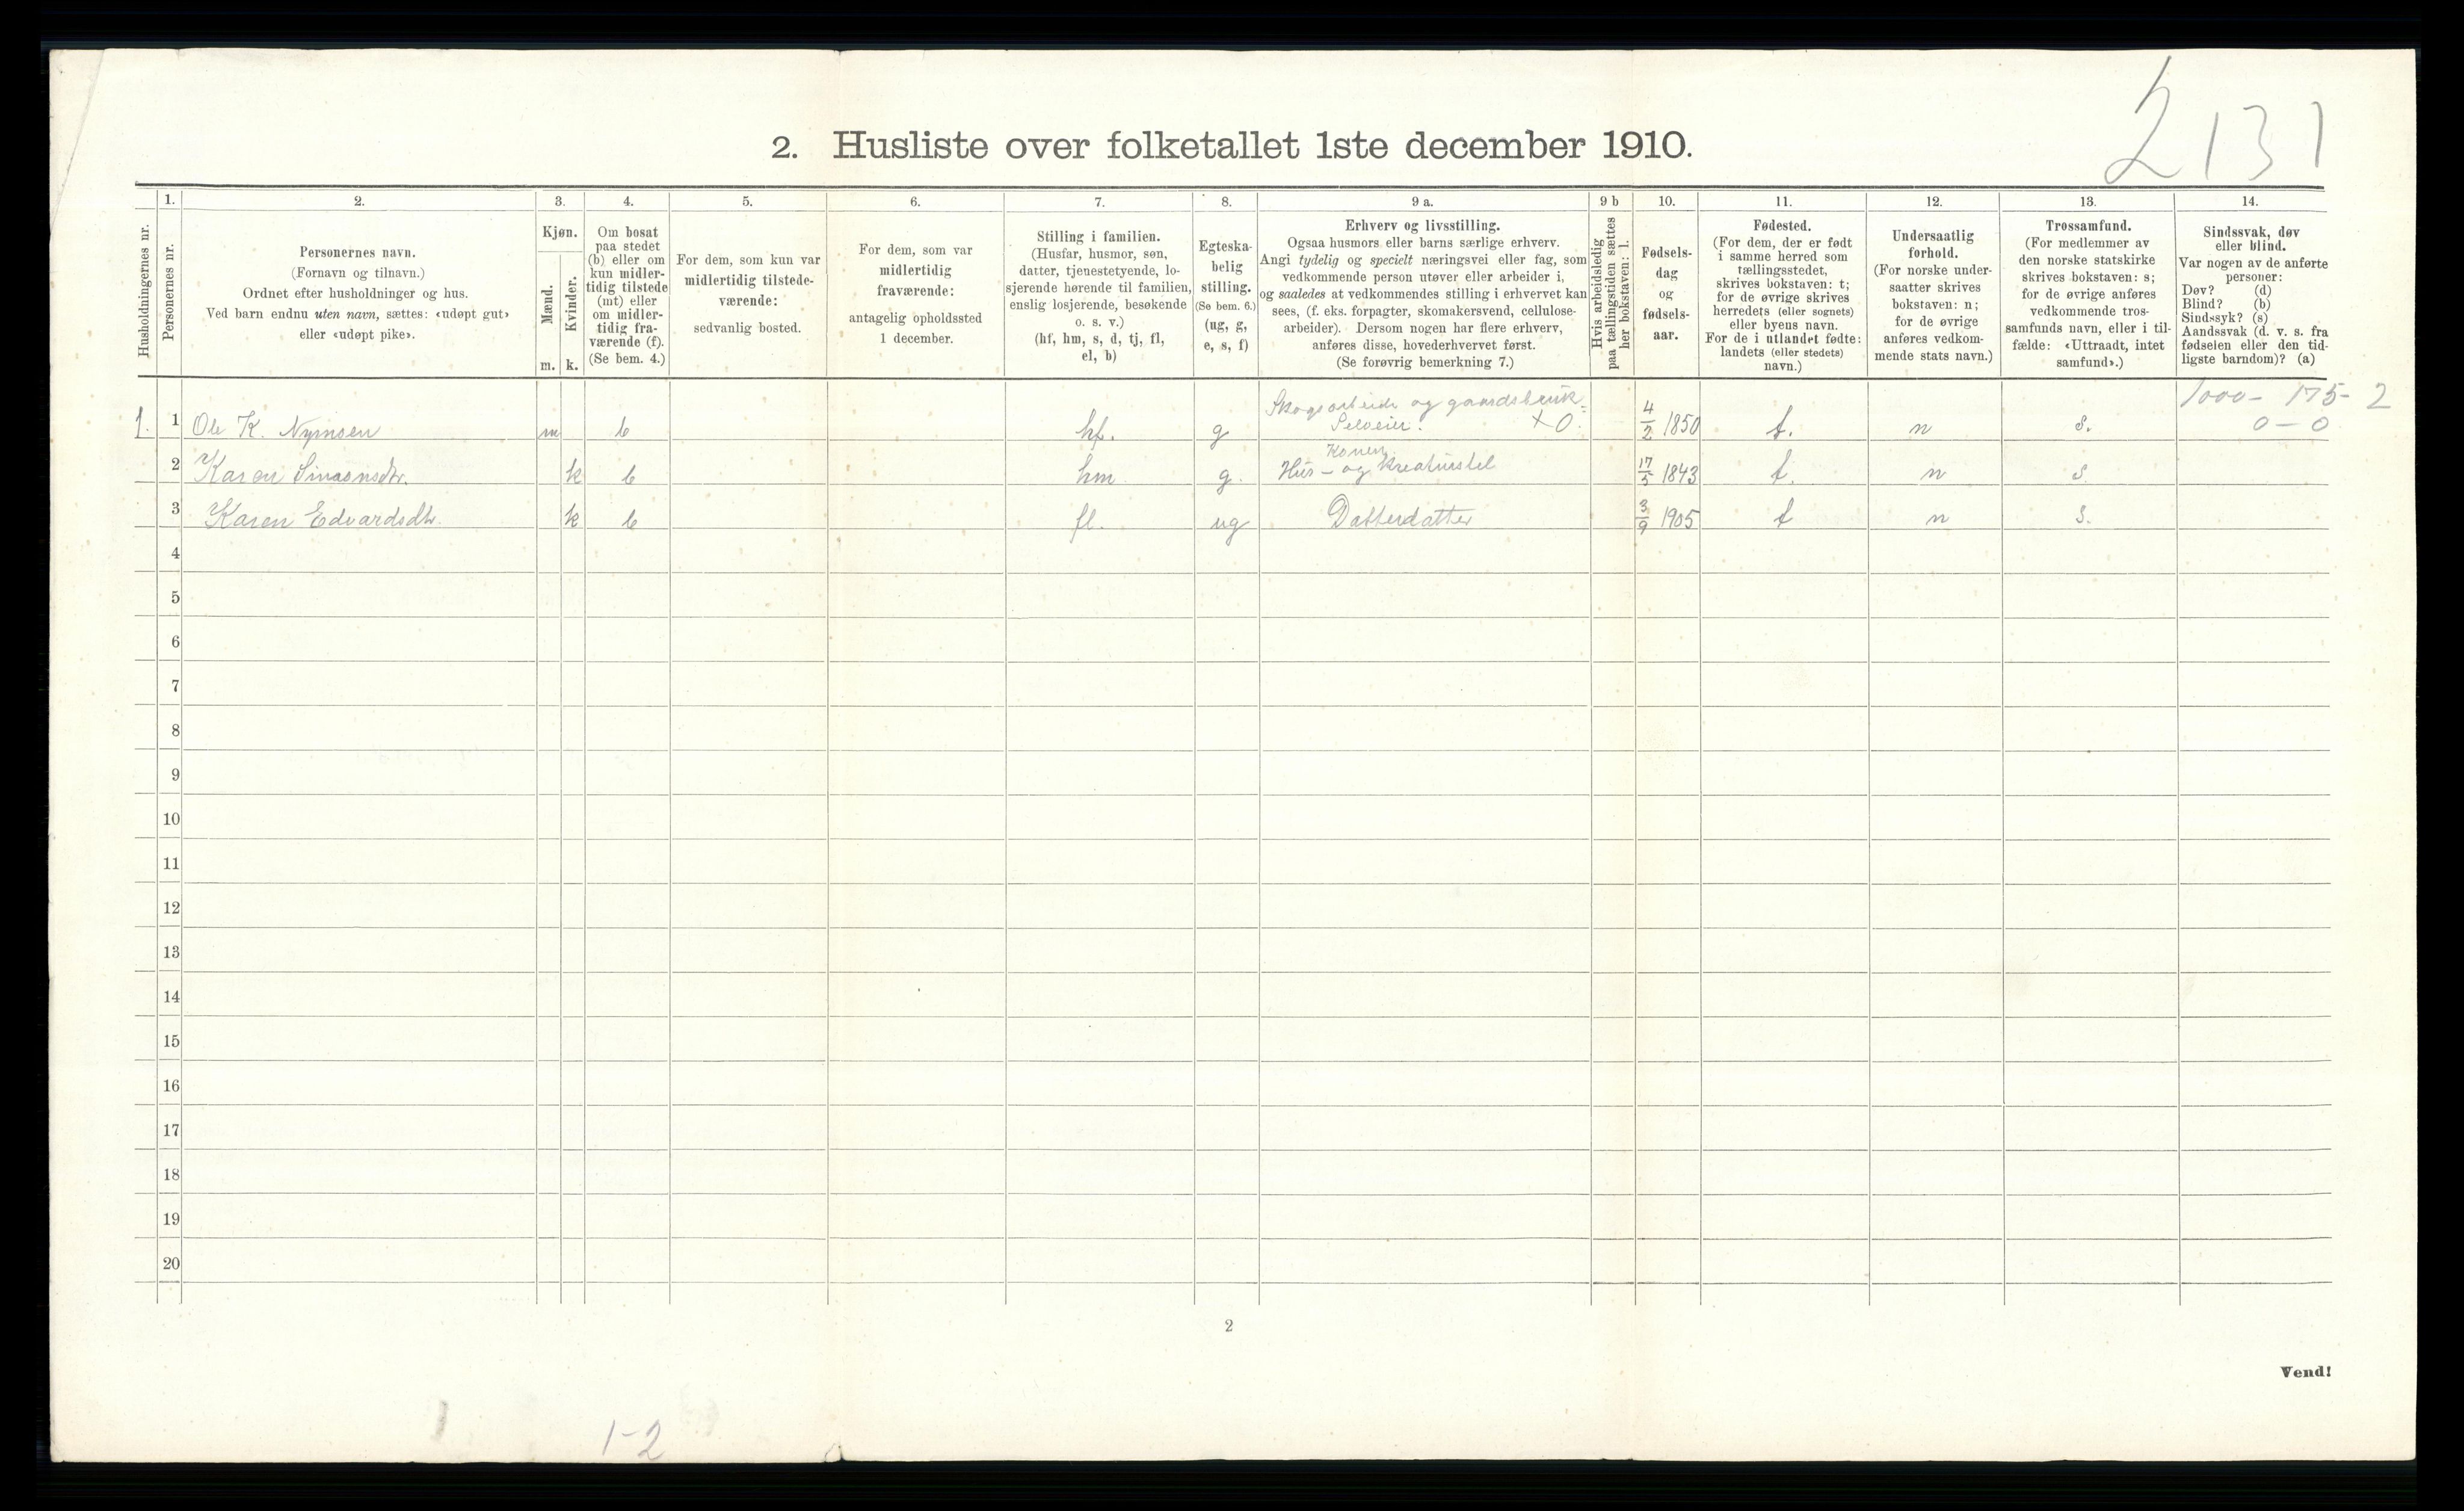 2131
2. Husliste over folketallet 1ste december 1910.
Husholdningernes nr.
1.
Personernes nr.
2.
Personernes navn.
(Fornavn og tilnavn.)
Ordnet efter husholdninger og hus.
Ved barn endnu uten navn, sættes: «udøpt gut»
eller «udøpt pike».
3.
Kjøn.
Mænd.
Kvinder.
m. k.
4.
Om bosat
paa stedet
(b) eller om
kun midler-
tidig tilstede
(mt) eller
om midler-
tidig fra-
værende (f).
(Se bem. 4.)
5.
For dem, som kun var
midlertidig tilstede-
værende:
sedvanlig bosted.
6.
For dem, som var
midlertidig
fraværende:
antagelig opholdssted
1 december.
7.
Stilling i familien.
(Husfar, husmor, søn,
datter, tjenestetyende, lo-
sjerende hørende til familien,
enslig losjerende, besøkende
o. s. v.)
(hf, hm, s, d, tj, fl,
el, b)
8.
Egteska-
belig
stilling.
(Se bem. 6.)
(ug, g,
e, s, f)
9 a.
Erhverv og livsstilling.
Ogsaa husmors eller barns særlige erhverv.
Angi tydelig og specielt næringsvei eller fag, som
vedkommende person utøver eller arbeider i,
og saaledes at vedkommendes stilling i erhvervet kan
sees, (f. eks. forpagter, skomakersvend, cellulose-
arbeider). Dersom nogen har flere erhverv,
anføres disse, hovederhvervet først.
(Se forøvrig bemerkning 7.)
9 b
Hvis arbeidsledig
paa tællingstiden sættes
her bokstaven: l.
10.
Fødsels-
dag
og
fødsels-
aar.
11.
Fødested.
(For dem, der er født
i samme herred som
tællingsstedet,
skrives bokstaven: t;
for de øvrige skrives
herredets (eller sognets)
eller byens navn.
For de i utlandet fødte:
landets (eller stedets)
navn.)
12.
Undersaatlig
forhold.
(For norske under-
saatter skrives
bokstaven: n;
for de øvrige
anføres vedkom-
mende stats navn.)
13.
Trossamfund.
(For medlemmer av
den norske statskirke
skrives bokstaven: s;
for de øvrige anføres
vedkommende tros-
samfunds navn, eller i til-
fælde: «Uttraadt, intet
samfund».)
14.
Sindssvak, døv
eller blind.
Var nogen av de anførte
personer:
Døv? (d)
Blind? (b)
Sindssyk? (s)
Aandssvak (d. v. s. fra
fødselen eller den tid-
ligste barndom)? (a)
Skogsarbeide og gaardsbruk 1000 - 175 - 2
1. 1 Ole K. m b hf. g Selveier. X 0. 4/2 1850 t. n s. 0 - 0
Konen
2 Karen k b hm g. Hus - og kreaturstel 17/5 1843 t. n s.
3 Karen Edvardsdtr. k b fl. ug Datterdatter 3/9 1905 t n s.
4
5
6
7
8
9
10
11
12
13
14
15
16
17
18
19
20
2
Vend!
1-2